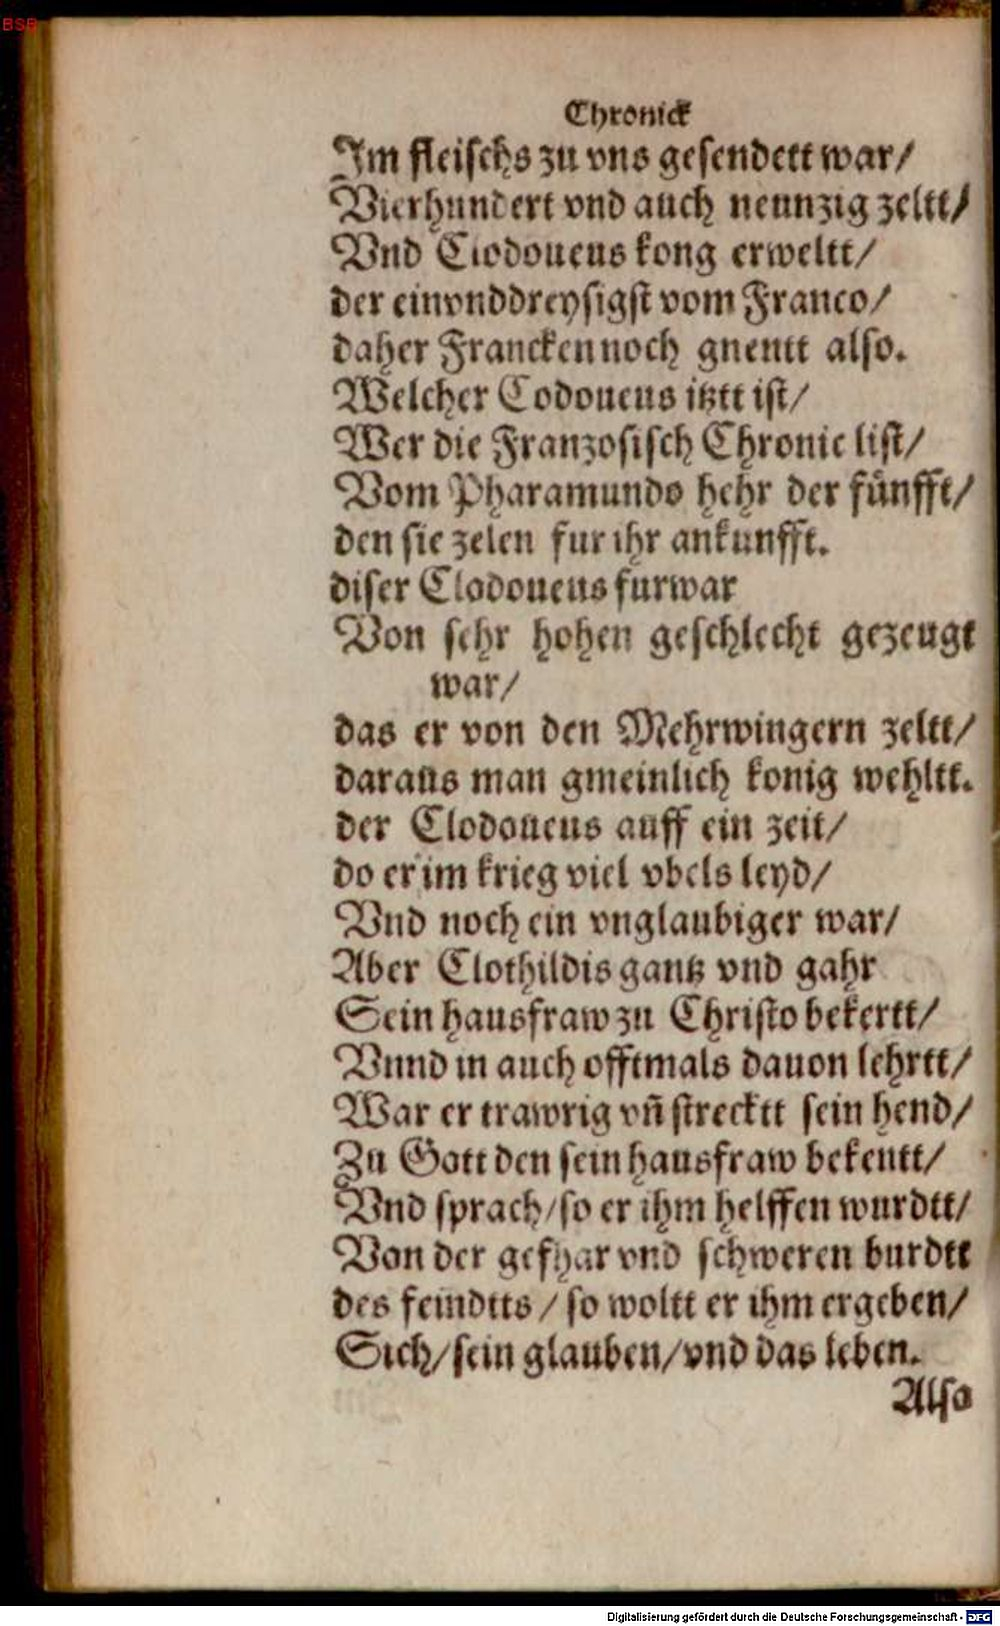 BSB
Chronick
Im fleischs zu vns gesendett war/
Vierhundert vnd auch neunzig zeltt/
Vnd Clodoueus kong erweltt/
der einvnddreysigst vom Franco/
daher Francken noch gnentt also.
Welcher Codoueus itztt ist/
Wer die Franzosisch Chronic list/
Vom Pharamundo hehr der fünfft/
den sie zelen fur ihr ankunfft.
diser Clodoueus furwar
Von sehr hohen geschlecht gezeugt
war/
das er von den Mehrwingern zeltt/
daraus man gmeinlich konig wehltt.
der Clodoueus auff ein zeit/
do er im krieg viel vbels leyd/
Vnd noch ein vnglaubiger war/
Aber Clothildis gantz vnd gahr
Sein hausfraw zu Christo bekertt/
Vnnd in auch offtmals dauon lehrtt/
War er trawrig vn̄ strecktt sein hend/
Zu Gott den sein hausfraw bekentt/
Vnd sprach/so er ihm helffen wurdtt/
Von der gefhar vnd schweren burdtt
des feindtts / so woltt er ihm ergeben/
Sich/sein glauben/vnd das leben.
Also
Digitalisierung gefördert durch die Deutsche Forschungsgemeinschaft - DFG